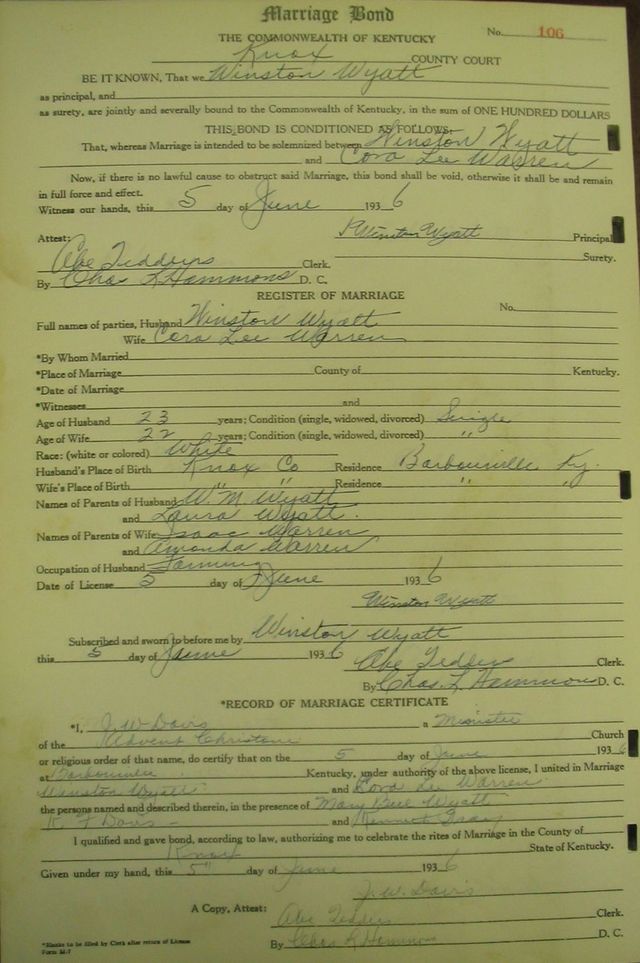 Marriage Bond
THE COMMONWEALTH OF KENTUCKY
No. 106
Knox COUNTY COURT
BE IT KNOWN, That we Winston Wyatt
as principal, and
as surety, are jointly and severally bound to the Commonwealth of Kentucky, in the sum of ONE HUNDRED DOLLARS
THIS BOND IS CONDITIONED AS FOLLOWS:
That, whereas Marriage is intended to be solemnized between Winston Wyatt
and Cora Lee Warren
Now, if there is no lawful cause to obstruct said Marriage, this bond shall be void, otherwise it shall be and remain
in full force and effect.
Witness our hands, this 5 day of June 1936
Winston Wyatt Principal
Attest: Surety.
Abe Clerk.
By Chas L Hammons D. C.
REGISTER OF MARRIAGE
No.
Full names of parties, Husband Winston Wyatt
Wife Cora Lee Warren
*By Whom Married
*Place of Marriage County of Kentucky.
*Date of Marriage
*Witnesses and
Age of Husband 23 years; Condition (single, widowed, divorced) Single
Age of Wife 22 years; Condition (single, widowed, divorced) "
Race: (white or colored) White
Husband's Place of Birth Knox Co Residence Barbourville Ky.
Wife's Place of Birth " " Residence " "
Names of Parents of Husband W. M. Wyatt
and Laura Wyatt.
Names of Parents of Wife Isaac Warren
and Amanda Warren
Occupation of Husband Farming
Date of License 5 day of June 1936
Winston Wyatt
Subscribed and sworn to before me by Winston Wyatt
this 5 day of June 1936
Abe Clerk.
By Chas. L Hammons D. C.
*RECORD OF MARRIAGE CERTIFICATE
*I, J. W. Davis a Minister
of the Advent Christian Church
or religious order of that name, do certify that on the 5 day of June 1936
at Barbourville Kentucky, under authority of the above license, I united in Marriage
Winston Wyatt and Cora Lee Warren
the persons named and described therein, in the presence of Mary Wyatt
Davis and Kenneth
I qualified and gave bond, according to law, authorizing me to celebrate the rites of Marriage in the County of
Knox State of Kentucky.
Given under my hand, this 5" day of June 1936
J. W. Davis
A Copy, Attest: Abe Clerk.
By Chas L Hammons D. C.
*Blanks to be filled by Clerk after return of License
Form M-7